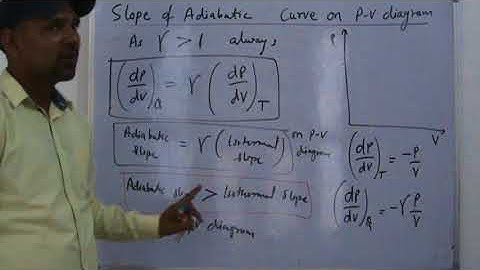 Slope of Adiabatic Curve on P-V diagram
As γ > 1 always
(dP/dV)Q = γ (dP/dV)T
Adiabatic slope = γ (Isothermal slope) on P-V diagram
Adiabatic slope > Isothermal slope
diagram
P
V
(dP/dV)T = -P/V
(dP/dV)Q = -γ P/V